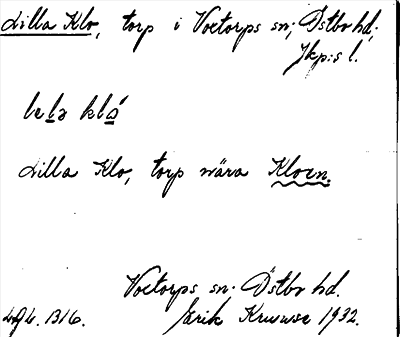 Lilla Klo, torp i Voxtorps sn; Östbo hd;
Jkp:s l.
lela kló
Lilla Klo, torp nära Kloen.
Voxtorps sn. Östbo hd.
Erik Kruuse 1932.